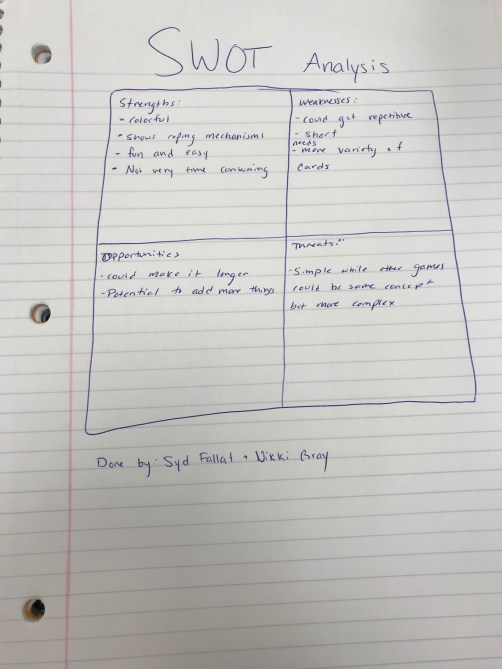 SWOT Analysis
Strengths:
- colorful
- shows coping mechanisms
- fun and easy
- Not very time consuming
Weaknesses:
- could get repetitive
- short
needs
- more variety of
cards
Opportunities
- could make it longer
- Potential to add more things
Threats:
- Simple while other games
could be same concept
but more complex
Done by: Syd Fallat + Nikki Gray